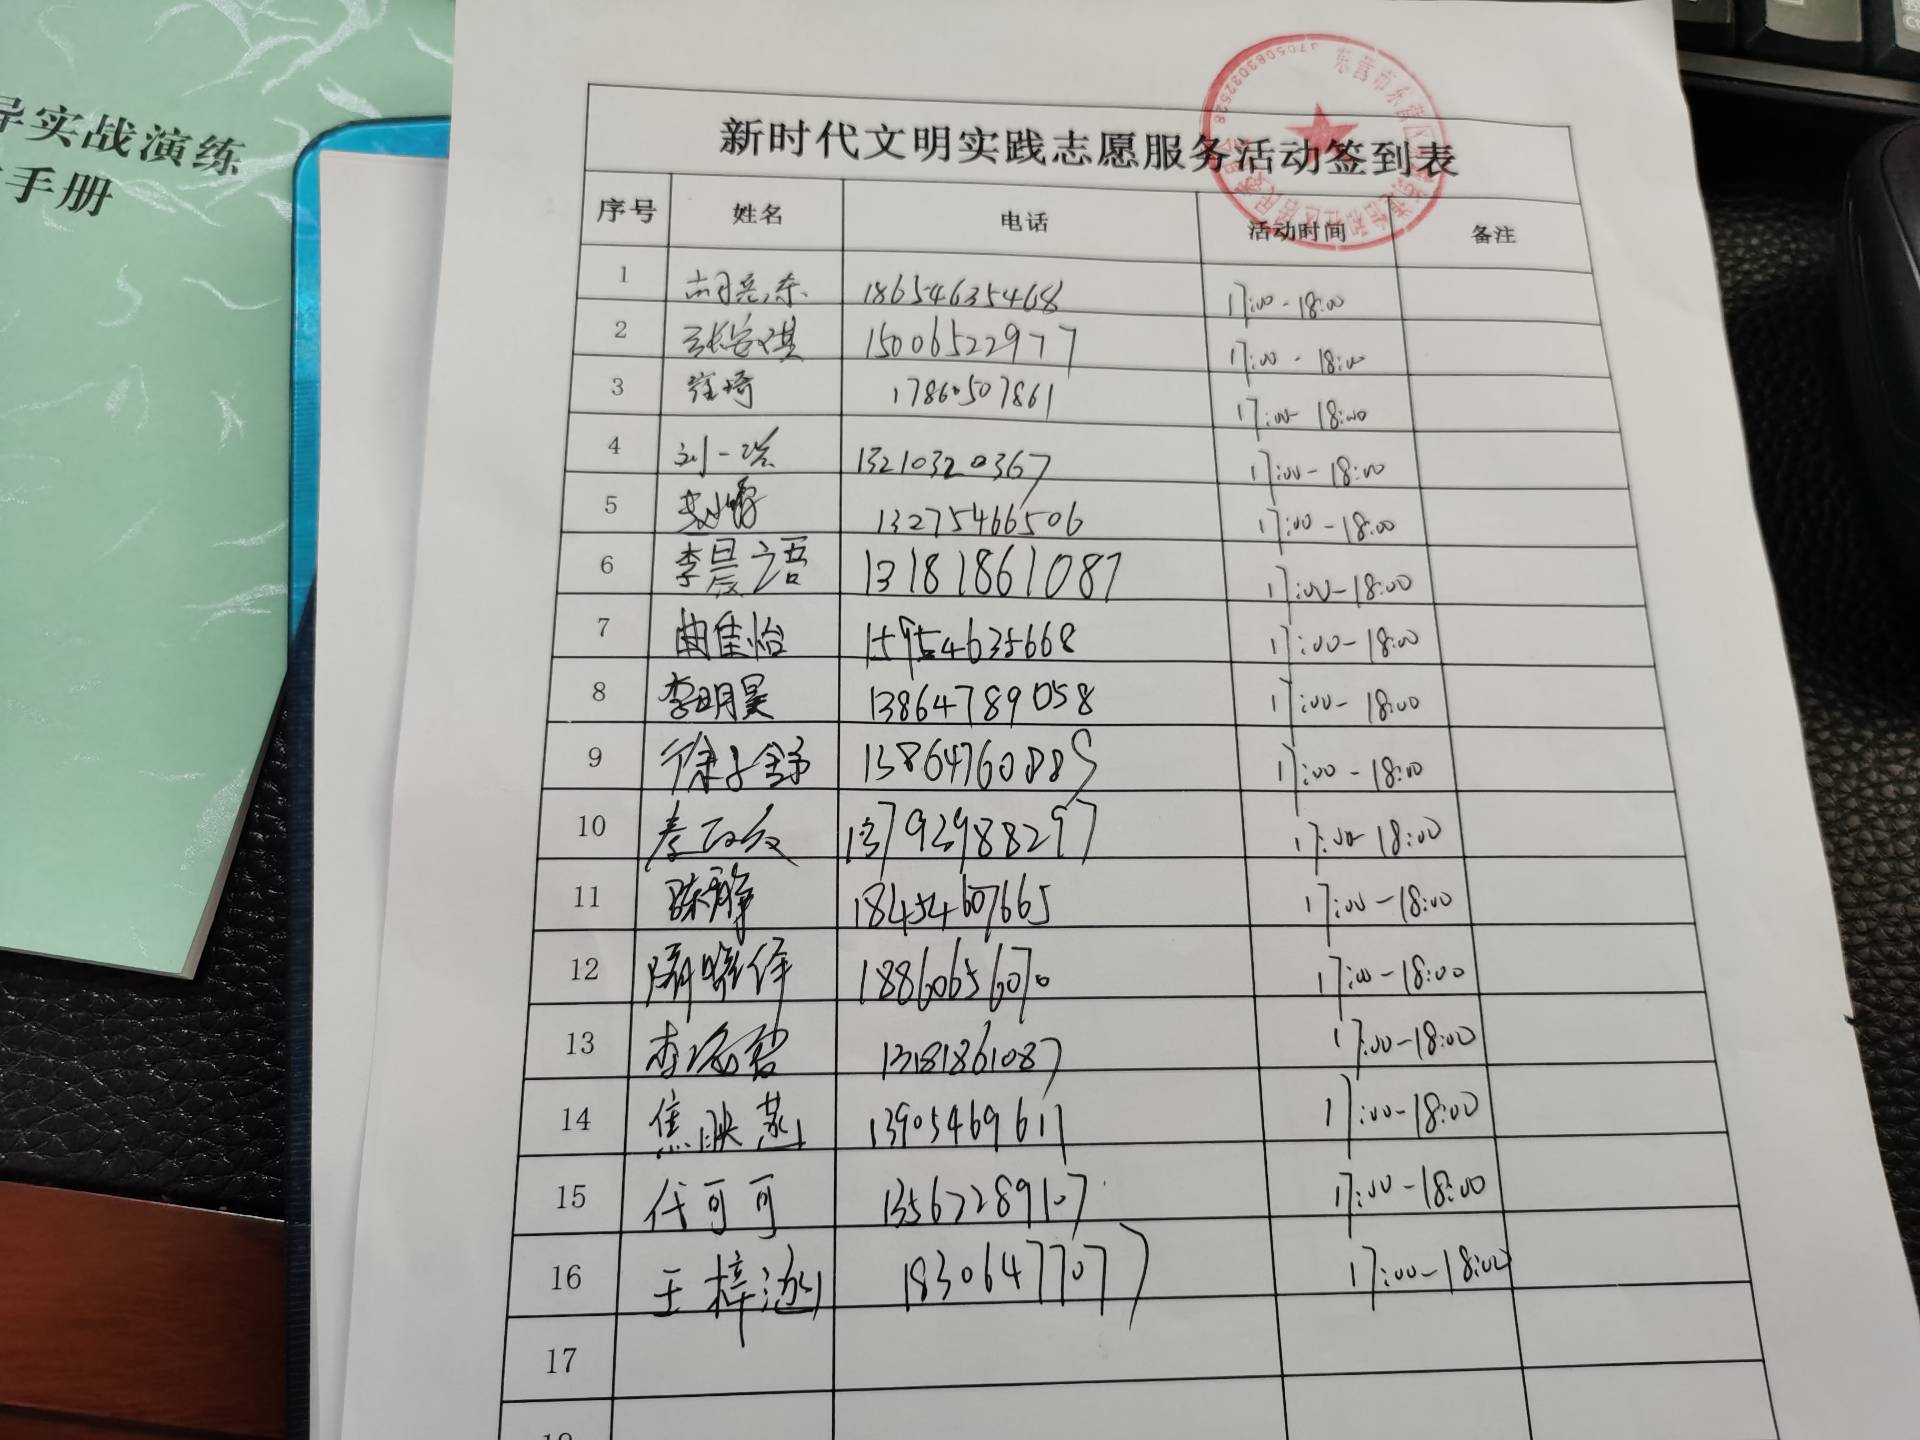 导实战演练
手册
新时代文明实践志愿服务活动签到表
序号 姓名 电话 活动时间 备注
1 胡亮东 18654635468 17:00-18:00
2 张安琪 15006522977 17:00-18:00
3 崔琦 17860507861 17:00-18:00
4 刘一 13210320367 17:00-18:00
5 13275466506 17:00-18:00
6 李晨语 13181861087 17:00-18:00
7 曲佳怡 15954635668 17:00-18:00
8 李明昊 13864789058 17:00-18:00
9 徐子舒 13864760885 17:00-18:00
10 13793988297 17:00-18:00
11 陈 18454607665 17:00-18:00
12 隋晓 18860656070 17:00-18:00
13 李 13181861087 17:00-18:00
14 焦映燕 13905469611 17:00-18:00
15 代可可 13562289107 17:00-18:00
16 王梓涵 18306477077 17:00-18:00
17